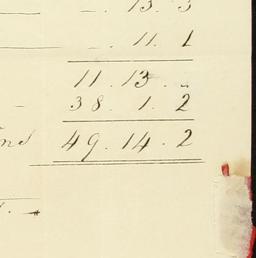 — . 13. 3
— . 11. 1
11. 13. „
38. 1. 2
49. 14. 2